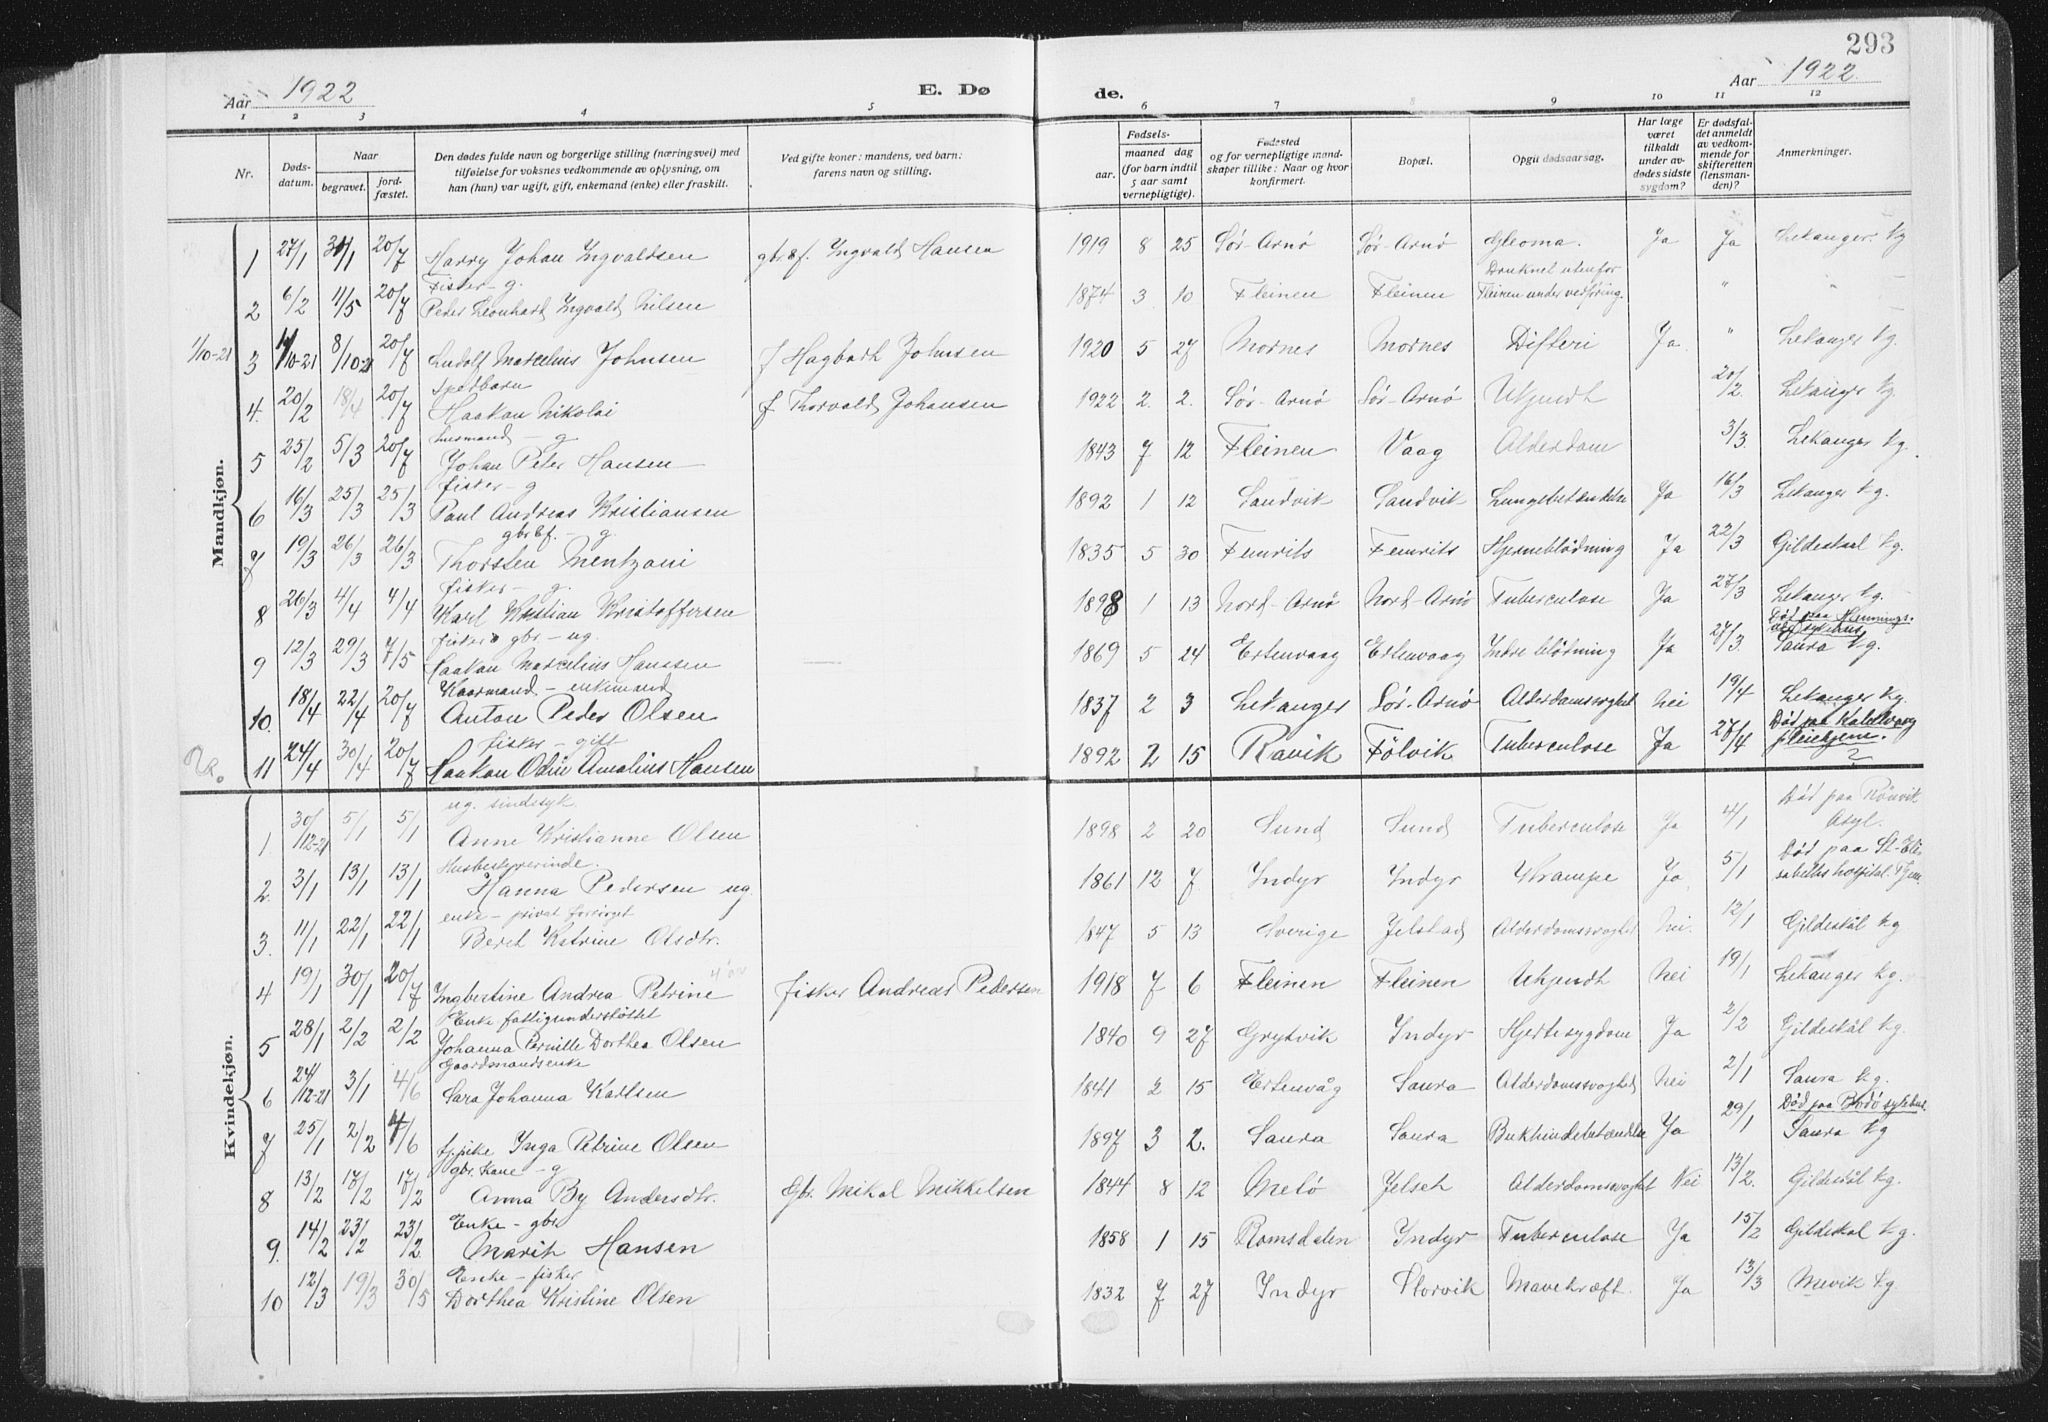 293
Aar 1922
E. Dø
de.
Aar 1922
1 2 3 4 5 6 7 8 9 10 11 12
Nr.
Døds-
datum.
Naar
begravet.
jord-
fæstet.
Den dødes fulde navn og borgerlige stilling (næringsvei) med
tilføielse for voksnes vedkommende av oplysning, om
han (hun) var ugift, gift, enkemand (enke) eller fraskilt.
Ved gifte koner: mandens, ved barn:
farens navn og stilling.
Fødsels-
aar.
maaned dag
(for barn indtil
5 aar samt
vernepligtige).
Fødested
og for vernepligtige mand-
skaper tillike: Naar og hvor
konfirmert.
Bopæl.
Opgit dødsaarsag.
Har læge
været
tilkaldt
under av-
dødes sidste
sygdom?
Er dødsfal-
det anmeldt
av vedkom-
mende for
skifteretten
(lensman-
den)?
Anmerkninger.
Mandkjøn.
1 27/1 31/1 20/7 Harry Johan Ingvaldsen gbr.bf. Ingvald Hansen 1919 8 25 Sør-Arnø Sør-Arnø Ja Ja Lekanger kg
Fisker - g. Druknet utenfor
2 6/2 11/5 20/7 Peder Leonhard Ingvald Nilsen 1874 3 10 Fleinen Fleinen Fleinen under vedføring. " "
1/10-21 3 1/10-21 8/10-21 20/7 Ludolf Marcelius Johnsen f Hagbarth Johnsen 1920 5 27 Mornes Mornes Difteri Ja " Lekanger kg.
Spedbarn
4. 20/2 18/4 20/7 Haakon Nikolai f Thorvald Johansen 1922 2. 2. Sør-Arnø Sør-Arnø Ukjendt 20/2. Lekanger kg.
husmand - g
5 25/2 5/3 20/7 Johan Peter Hansen 1843 7 12 Fleinen Vaag Alderdom 3/3. Lekanger kg.
fisker - g
6 16/3 25/3 25/3 Paul Andreas Kristiansen 1892 1 12 Sandvik Sandvik Lungebetændelse Ja 16/3 Lekanger kg.
gbrbf. - g.
7 19/3 26/3 26/3 Thorsten Mentzoni 1835 5 30 Femris Femris Hjerneblødning Ja 22/3 Gildeskaal kg.
fisker - g.
8 26/3 4/4 4/4 Karl Kristian Kristoffersen 1898 1 13 Nord-Arnø Nord-Arnø Tuberculose Ja 27/3 Lekanger kg.
fisker gbr. - ug. Død paa Hennings-
9 12/3 29/3 7/5 Haakon Marcelius Hanssen 1869 5 24 Ertenvaag Ertenvaag Indre blødning Ja 27/3. Saura kg.
Kaarmand - enkemand
10. 18/4 22/4 20/7 Anton Peder Olsen 1837 2 3 Lekanger Sør-Arnø Alderdomssvaghet Nei 19/4 Lekanger kg.
fisker - gift Død paa
11 24/4 30/4 20/7 Haakon Odin Amalius Hansen 1892 2 15 Ravik Følvik Tuberculose Ja 27/4 pleiehjem.
?
Kvindekjøn.
ug. sindssyk. Død paa Rönvik
1. 30/12-21 5/1 5/1 Anne Kristianne Olsen 1898 2 20 Sund Sund Tuberculose Ja 4/1 Asyl.
Husbestyrerinde. Død paa St-Eli-
2. 3/1 13/1 13/1 Hanna Pedersen ug. 1861 12 7 Indyr Indyr Krampe Ja 5/1 sabeths hospital.
enke - privat forsørget
3. 11/1 22/1 22/1 Beret Katrine Olsdtr. 1847 5 13 Sverige Jelstad Alderdomssvaghet Nei. 12/1 Gildeskål kg
4 19/1 30/1 20/7 Ingbertine Andrea Petrine fisker Andreas Pedersen 1918 7 6 Fleinen Fleinen Ukjendt Nei 19/1 Lekanger kg.
Enke fattigunderstøttet
5 28/1 2/2 2/2 Johanna Pernille Dorthea Olsen 1840 9 27 Grytvik Indyr Hjertesygdom Ja 2/2 Gildeskål kg.
Gaardmandsenke
6 24/12-21 3/1 4/6 Sara Johanna Karlsen 1841 2 15 Ertenvåg Saura Alderdomssvaghet Nei 2/1 Saura kg.
Død paa Bodø sykehus.
7 25/1 2/2 4/6 pike Inga Petrine Olsen 1897 3 2. Saura Saura Bukhindebetændelse Ja 29/1 Saura kg
gbr. Kone - g
8 13/2 17/2 17/2 Anna By Andersdtr. Gbr. Mikal Mikkelsen 1844 8 12 Melø Jelseth Alderdomssvaghet Nei 13/2. Gildeskål kg.
Enke - gbr
9. 14/2 23/2 23/2 Marith Hansen 1858 1 15 Romsdalen Indyr Tuberculose Ja 15/2 Gildeskål kg.
Enke - fisker
10 12/3 19/3 30/5 Dorthea Kristine Olsen 1832 7 27 Indyr Storvik Mavekræft. Ja 13/3 Mevik kg.